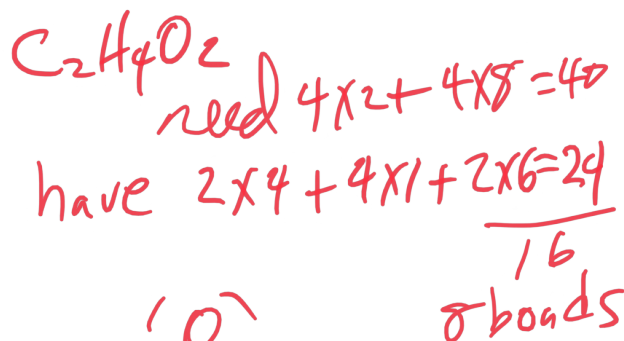 C₂H₄O₂
need 4x2+4x8=40
have 2x4+4x1+2x6=24
16
8 bonds
O